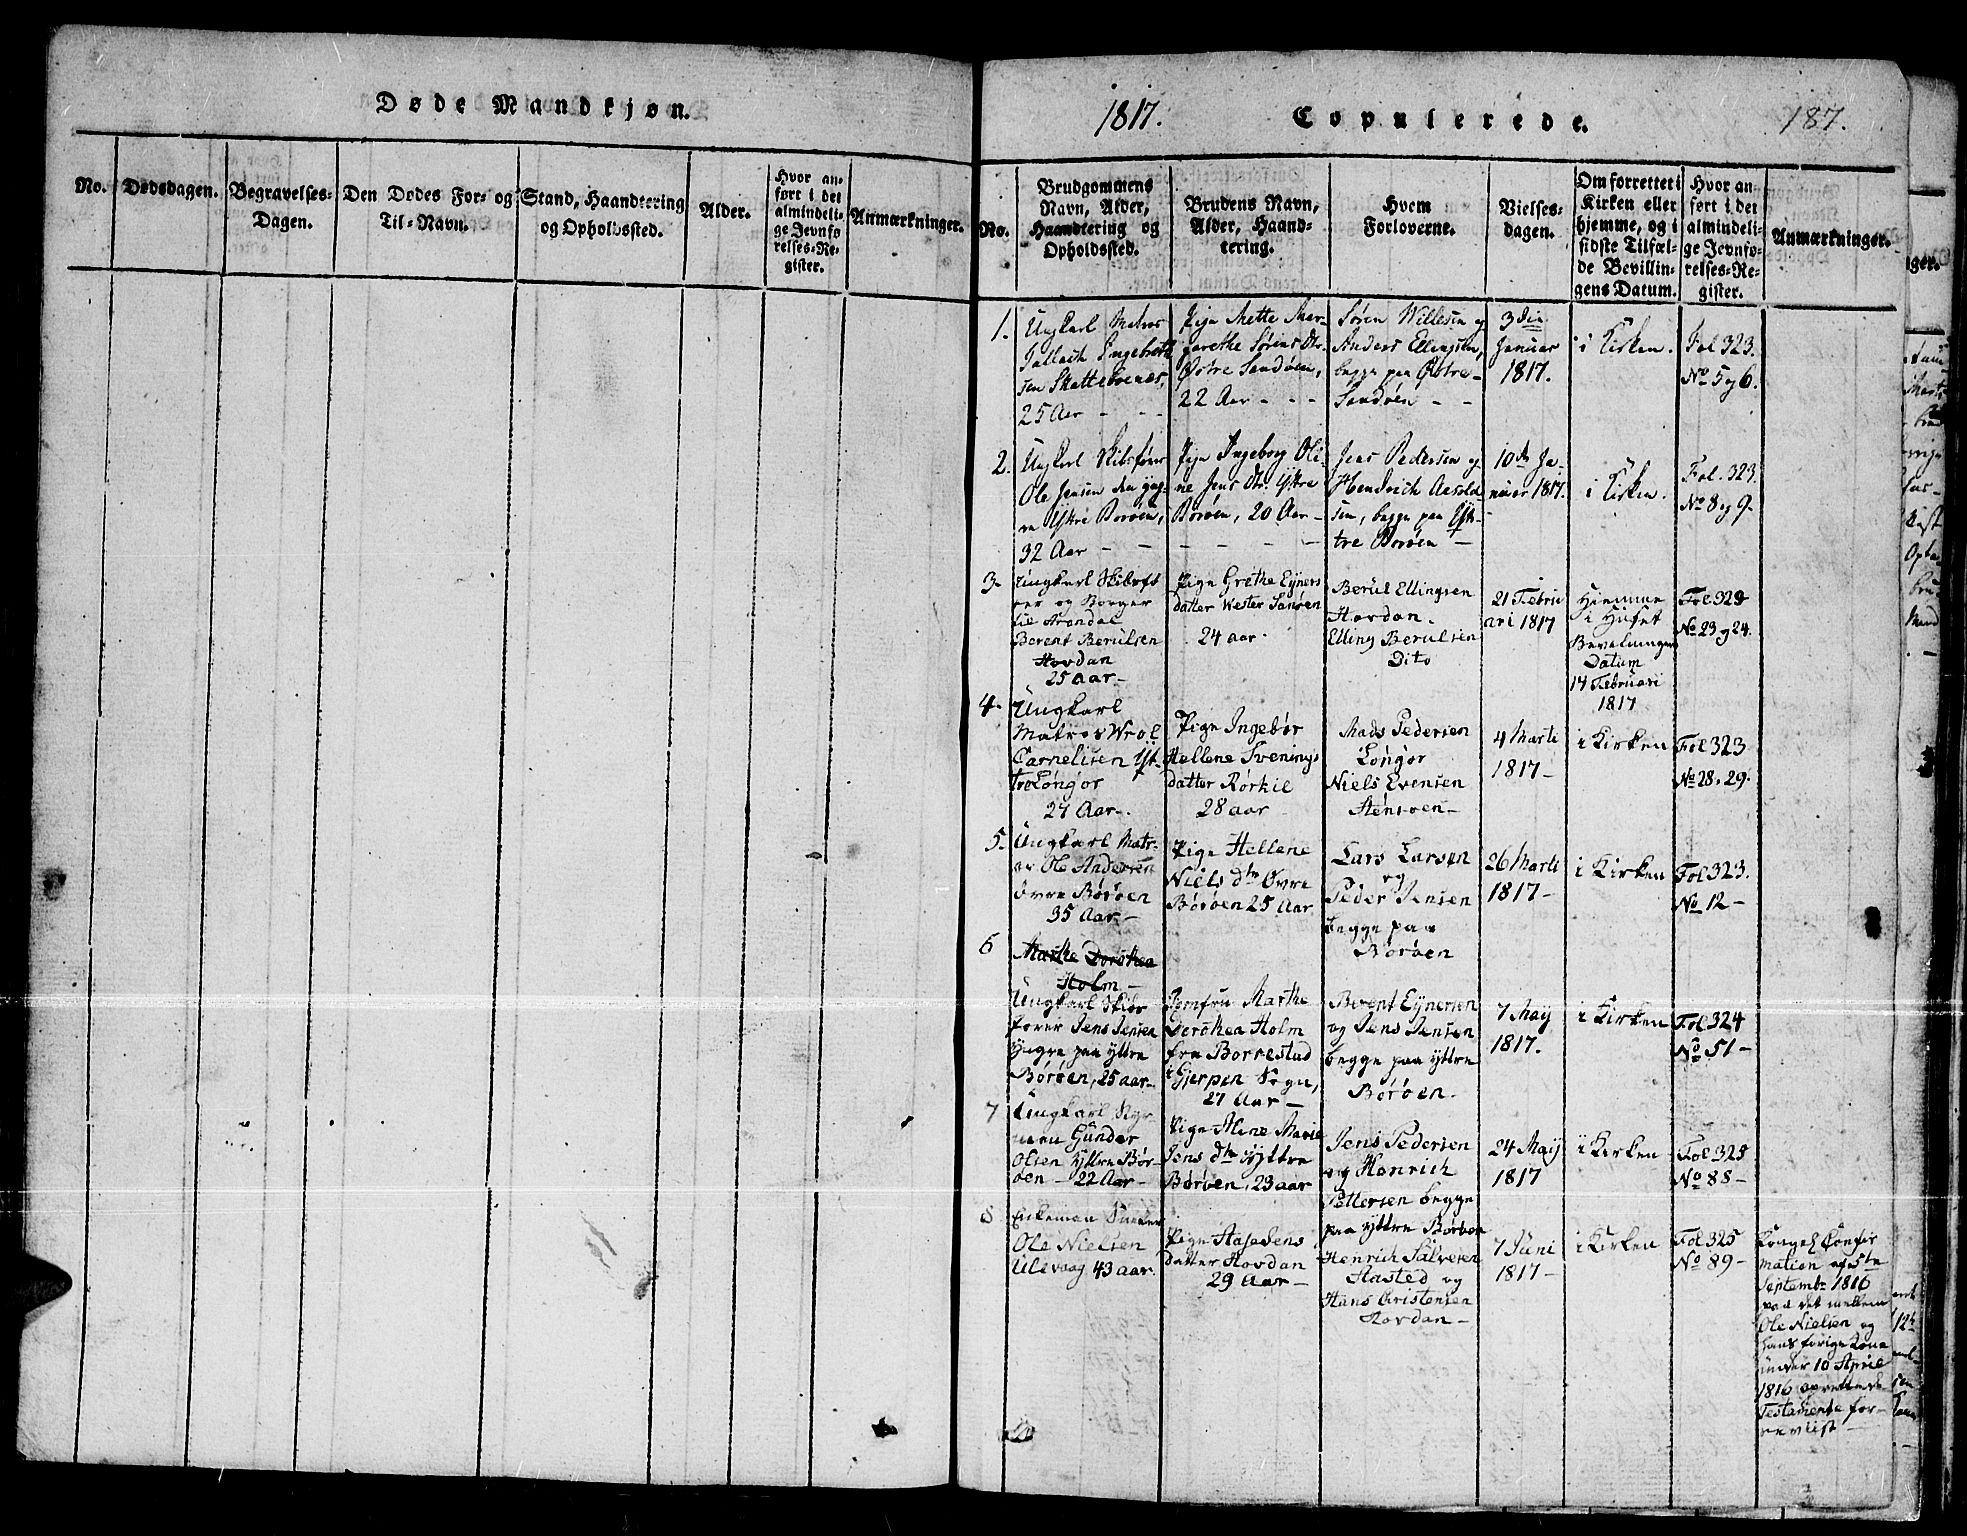 Døde Mandkjøn.
No.
Dødsdagen.
Begravelses-
Dagen.
Den Dødes For- og
Til-Navn.
Stand, Haandtering
og Opholdssted.
Alder.
Hvor an-
ført i det
almindeli-
ge Jevnfø
relses-Re-
gister.
Anmærkninger.
1817.
Copulerede.
187.
No.
Brudgommens
Navn, Alder,
Haandtering og
Opholdssted.
Brudens Navn,
Alder, Haand-
tering.
Hvem
Forloverne.
Vielses-
dagen.
Om forrettet i
Kirken eller
hjemme, og i
sidste Tilfæl-
de Bevillin-
gens Datum.
Hvor an
ført i det
almindeli-
ge Jevnfø-
relses-Re-
gister.
Anmærkninger.
1.
Ungkarl Matros
Tallach Engebreth
sen
25 Aar - - -
Pige Mette Mar-
grethe Sørens Dtr.
Østre Sandøen,
22 Aar - - -
Søren Willesen og
Anders Ellingsen,
begge paa Østre-
Sandøen - -
3die
Januar
1817.
i Kirken.
Fol 323.
No 5 og 6.
2.
Ungkarl Skibsfører
Ole Jensen den yng-
re Yttre Borøen,
32 Aar - -
Pige Ingeborg Oli-
ne Jens Dtr. Yttre
Borøen, 20 Aar -
- - - -
Jens Pedersen og
Hendrich Aarold-
sen, begge paa Yt-
tre Borøen -
10de Ja-
nuar 1817.
i Kirken.
Fol. 323.
No 8 og 9.
3-
Ungkarl Skibsfø
rer og Borger
til Arendal
Berent Berulsen
Hovdan
25 aar-
Pige Grethe Eyners
datter Wester Sanøen
24 aar.
Berul Ellingsen
Hovdan.
Elling Berulsen
Dito
21 Febru
ari 1817
Hiemme
i Huset
Bevelningens
Datum
14 Februari
1817
Fol 323
No 23 og 24.
4-
Ungkarl
Matros Wrol
Carnelisen Yt-
tre Longør
27 Aar-.
Pige Ingebor
Hellene Svenings
datter Rørkil
28 aar
Mads Pedersen
Longør
Niels Evensen
Stensøen-
4 Marti
1817-
i Kirken
Fol 323
No 28. 29.
5-
Ungkarl Matr-
os Ole Andersen
Øvre Børøen
35 Aar-
Pige Hellene
Niels dtr Øvre
Børøen 25 Aar
Lars Larsen
og
Peder Jensen
begge paa
Børøen
26 Marti
1817-
i Kirken
Fol 323.
No 12-
6
Marthe Dorothea
Holm-
Ungkarl Skibs
fører Jens Jensen
Yngre paa yttre
Børøen, 25 aar-
Jomfru Marthe
Dorothea Holm
fra Borrestad
i Gjerpen Sogn,
27 Aar-
Berent Eynersen
og Jens Jensen
begge paa yttre
Børøen.
7 May
1817.
i Kirken
Fol 324
No 51-
7
Ungkarl Styr
man Gunder
Olsen Yttre Bør-
øen - 22 Aar-
Pige Aline Marie
Jens dtr Yttre
Børøen, 23 aar
Jens Pedersen
og Henrich
Pettersen begge
paa yttre Børøen
24 May
1817
i Kirken
Fol 325
No 88-
8
Enkeman
Ole Nielsen
Ulevaag 43 aar.
Pige Jens
datter Hovdan
29 Aar-
Henrich Salvesen
Stasted og
Hans Cristensen
Hovdan-
7 Juni
1817-
i Kirken
Fol 325
No 89-
Kongel Confir
mation af 5te
Septembr 1816
paa det mellem
Ole Nielsen og
hans forige Kone
under 10 April
1816 oprettede
Testamente for-
reviist-